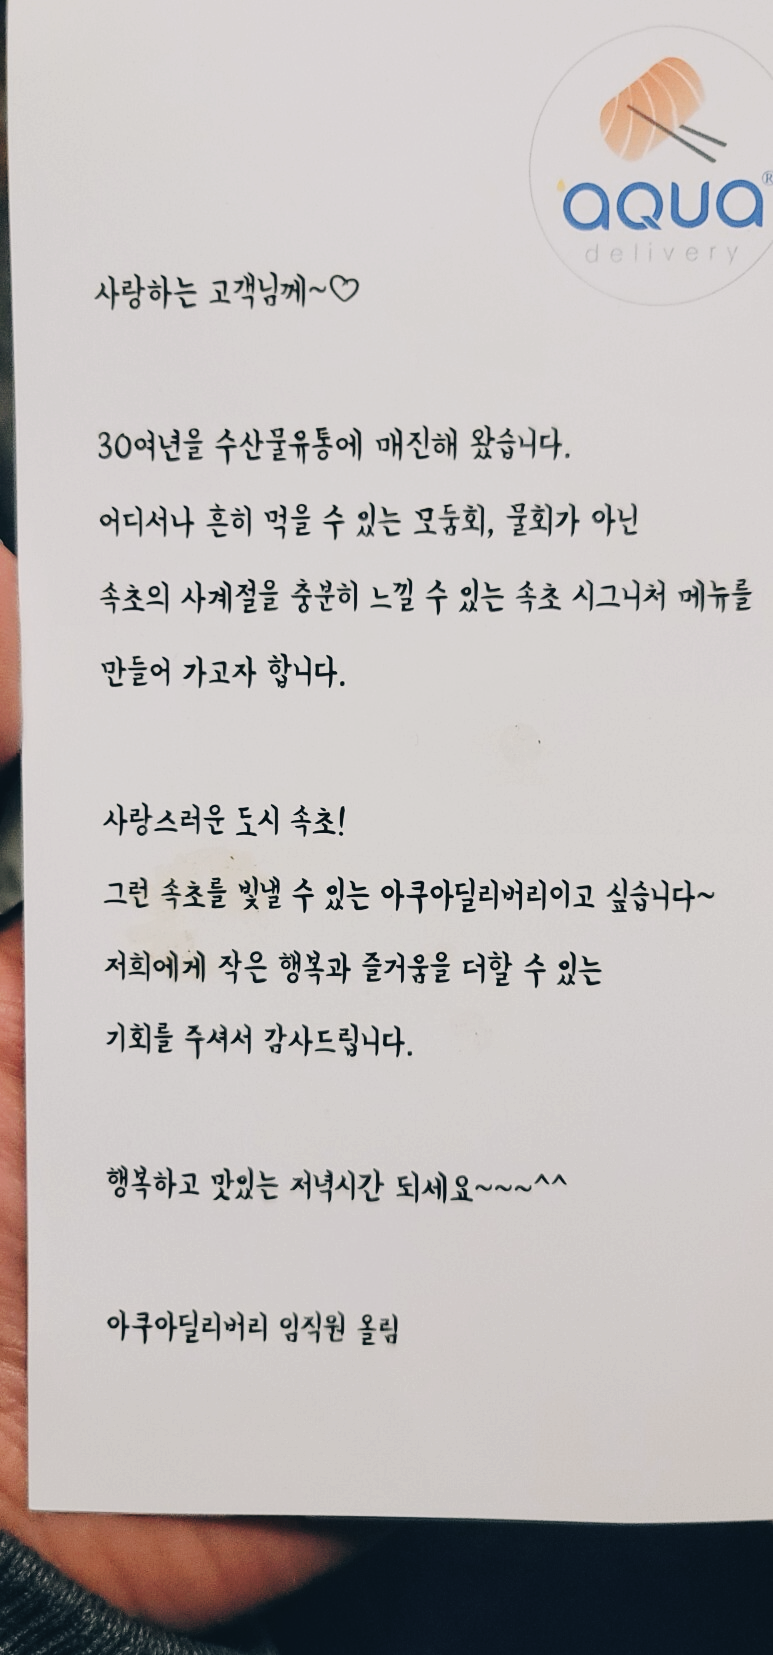 aqua®
delivery
사랑하는 고객님께~♡
30여년을 수산물유통에 매진해 왔습니다.
어디서나 흔히 먹을 수 있는 모둠회, 물회가 아닌
속초의 사계절을 충분히 느낄 수 있는 속초 시그니처 메뉴를
만들어 가고자 합니다.
사랑스러운 도시 속초!
그런 속초를 빛낼 수 있는 아쿠아딜리버리이고 싶습니다~
저희에게 작은 행복과 즐거움을 더할 수 있는
기회를 주셔서 감사드립니다.
행복하고 맛있는 저녁시간 되세요~~~^^
아쿠아딜리버리 임직원 올림